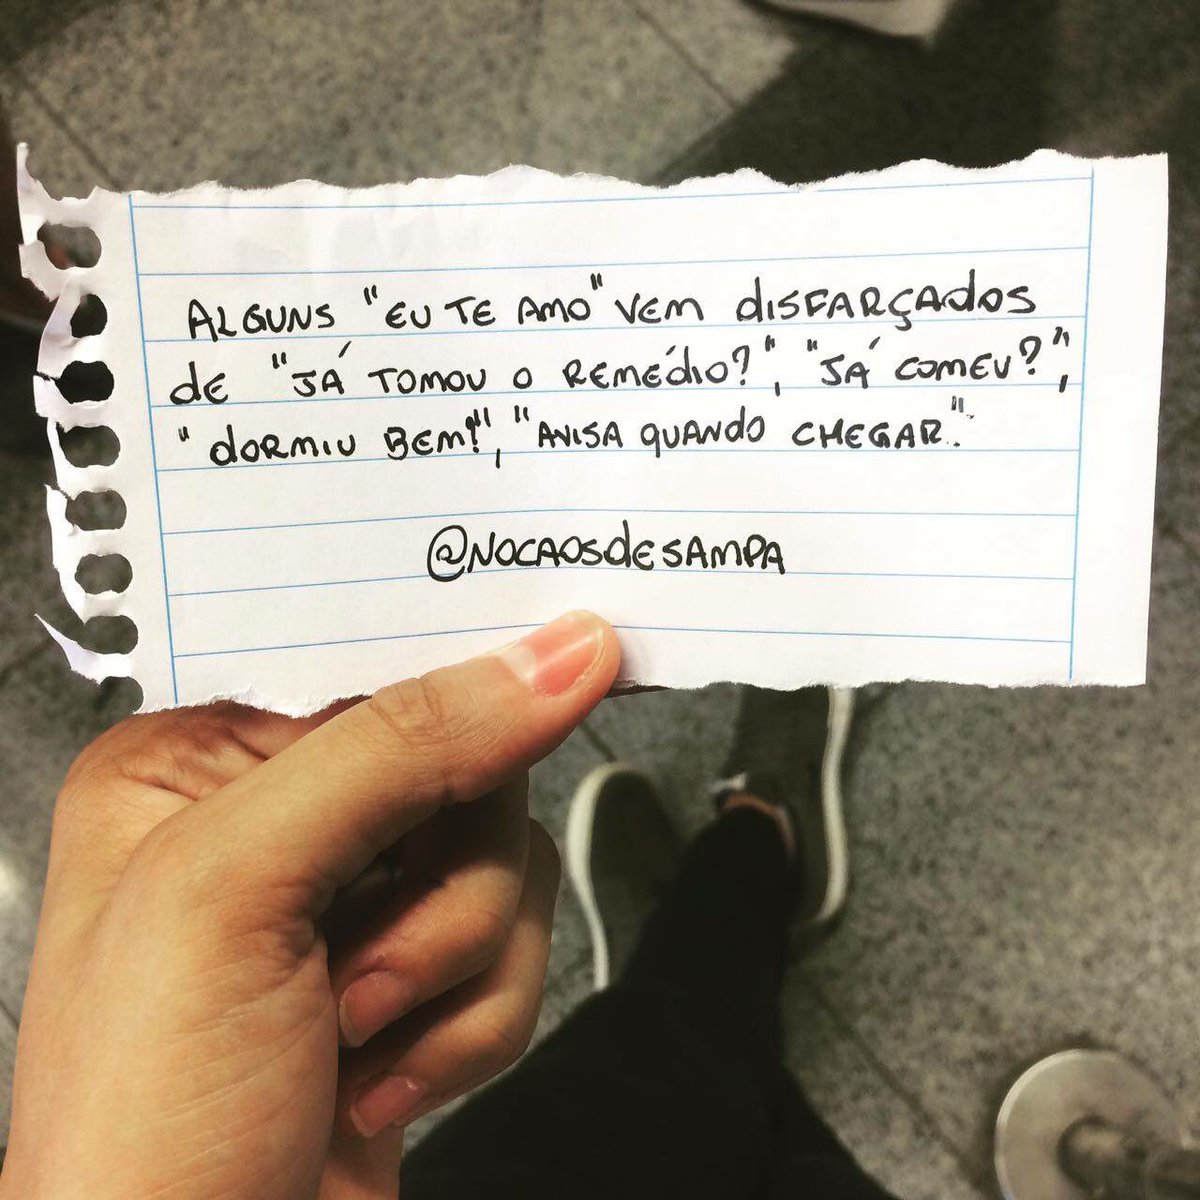 ALGUNS "EU TE AMO" VEM DISFARÇADOS
DE "JÁ TOMOU O REMÉDIO?", "JÁ COMEU?",
"DORMIU BEM?", "AVISA QUANDO CHEGAR".
@NOCAOSDESAMPA